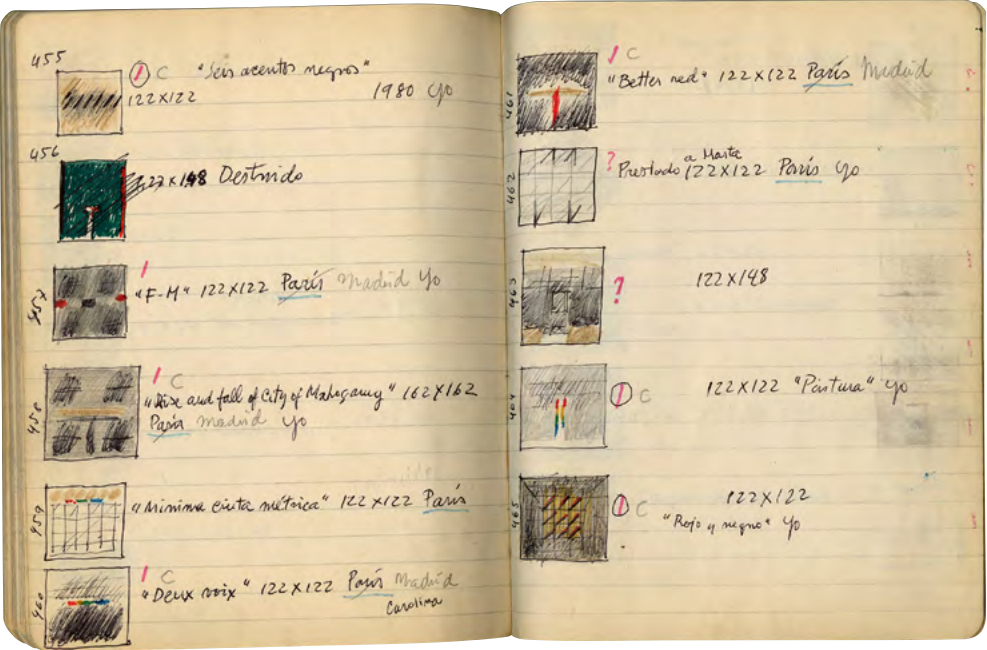 455
1 C "Seis acentos negros"
122X122 1980 yo
456
122X148 Destruido
457
1
"F-M" 122X122 París Madrid yo
458
1 C
"Rise and fall of City of Mahogany" 162X162
París Madrid yo
459
"Minima cinta métrica" 122X122 París
460
1 C
"Deux voix" 122X122 París Madrid
Carolina
461
1 C
"Better red" 122X122 París Madrid
462
? Prestado a Marta
122X122 París yo
463
? 122X148
464
1 C 122X122 "Pintura" yo
465
1 C 122X122
"Rojo y negro" yo